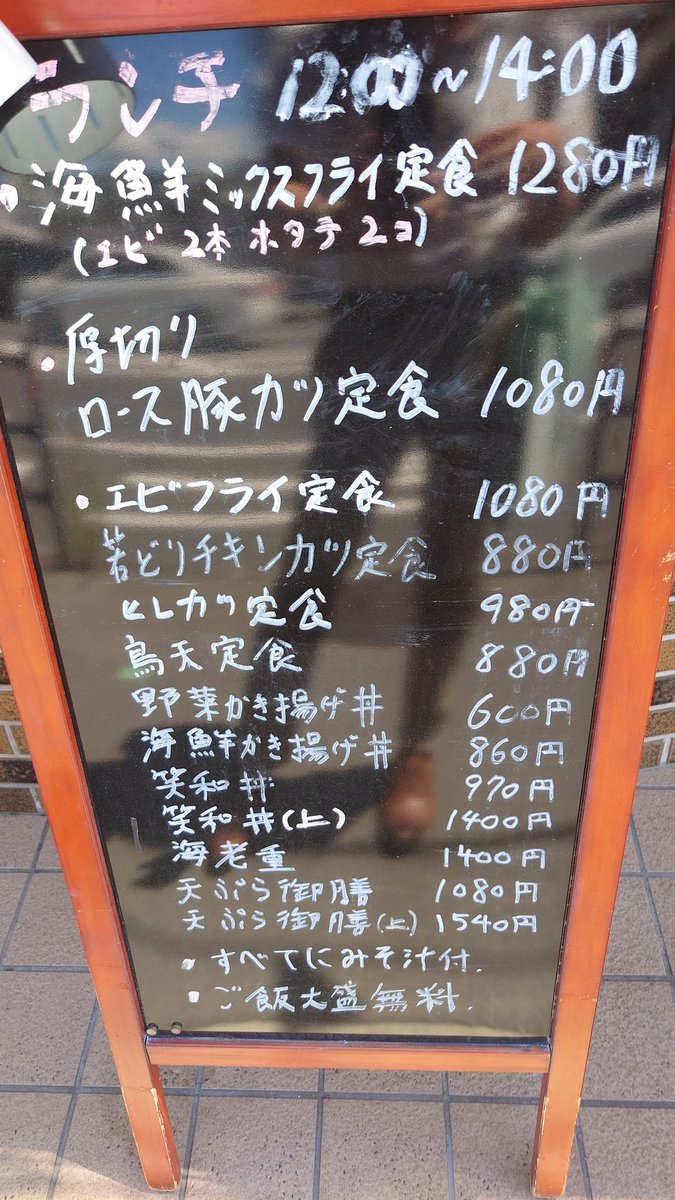 ランチ 12:00~14:00
・海鮮ミックスフライ定食 1280円
(エビ 2本 ホタテ 2ヨ)
・厚切り
ロース豚カツ定食 1080円
・エビフライ定食 1080円
若どりチキンカツ定食 880円
ヒレカツ定食 980円
鳥天定食 880円
野菜かき揚げ丼 600円
海鮮かき揚げ丼 860円
笑和丼 970円
笑和丼(上) 1400円
海老重 1400円
天ぷら御膳 1080円
天ぷら御膳(上) 1540円
・すべてにみそ汁付.
・ご飯大盛無料.